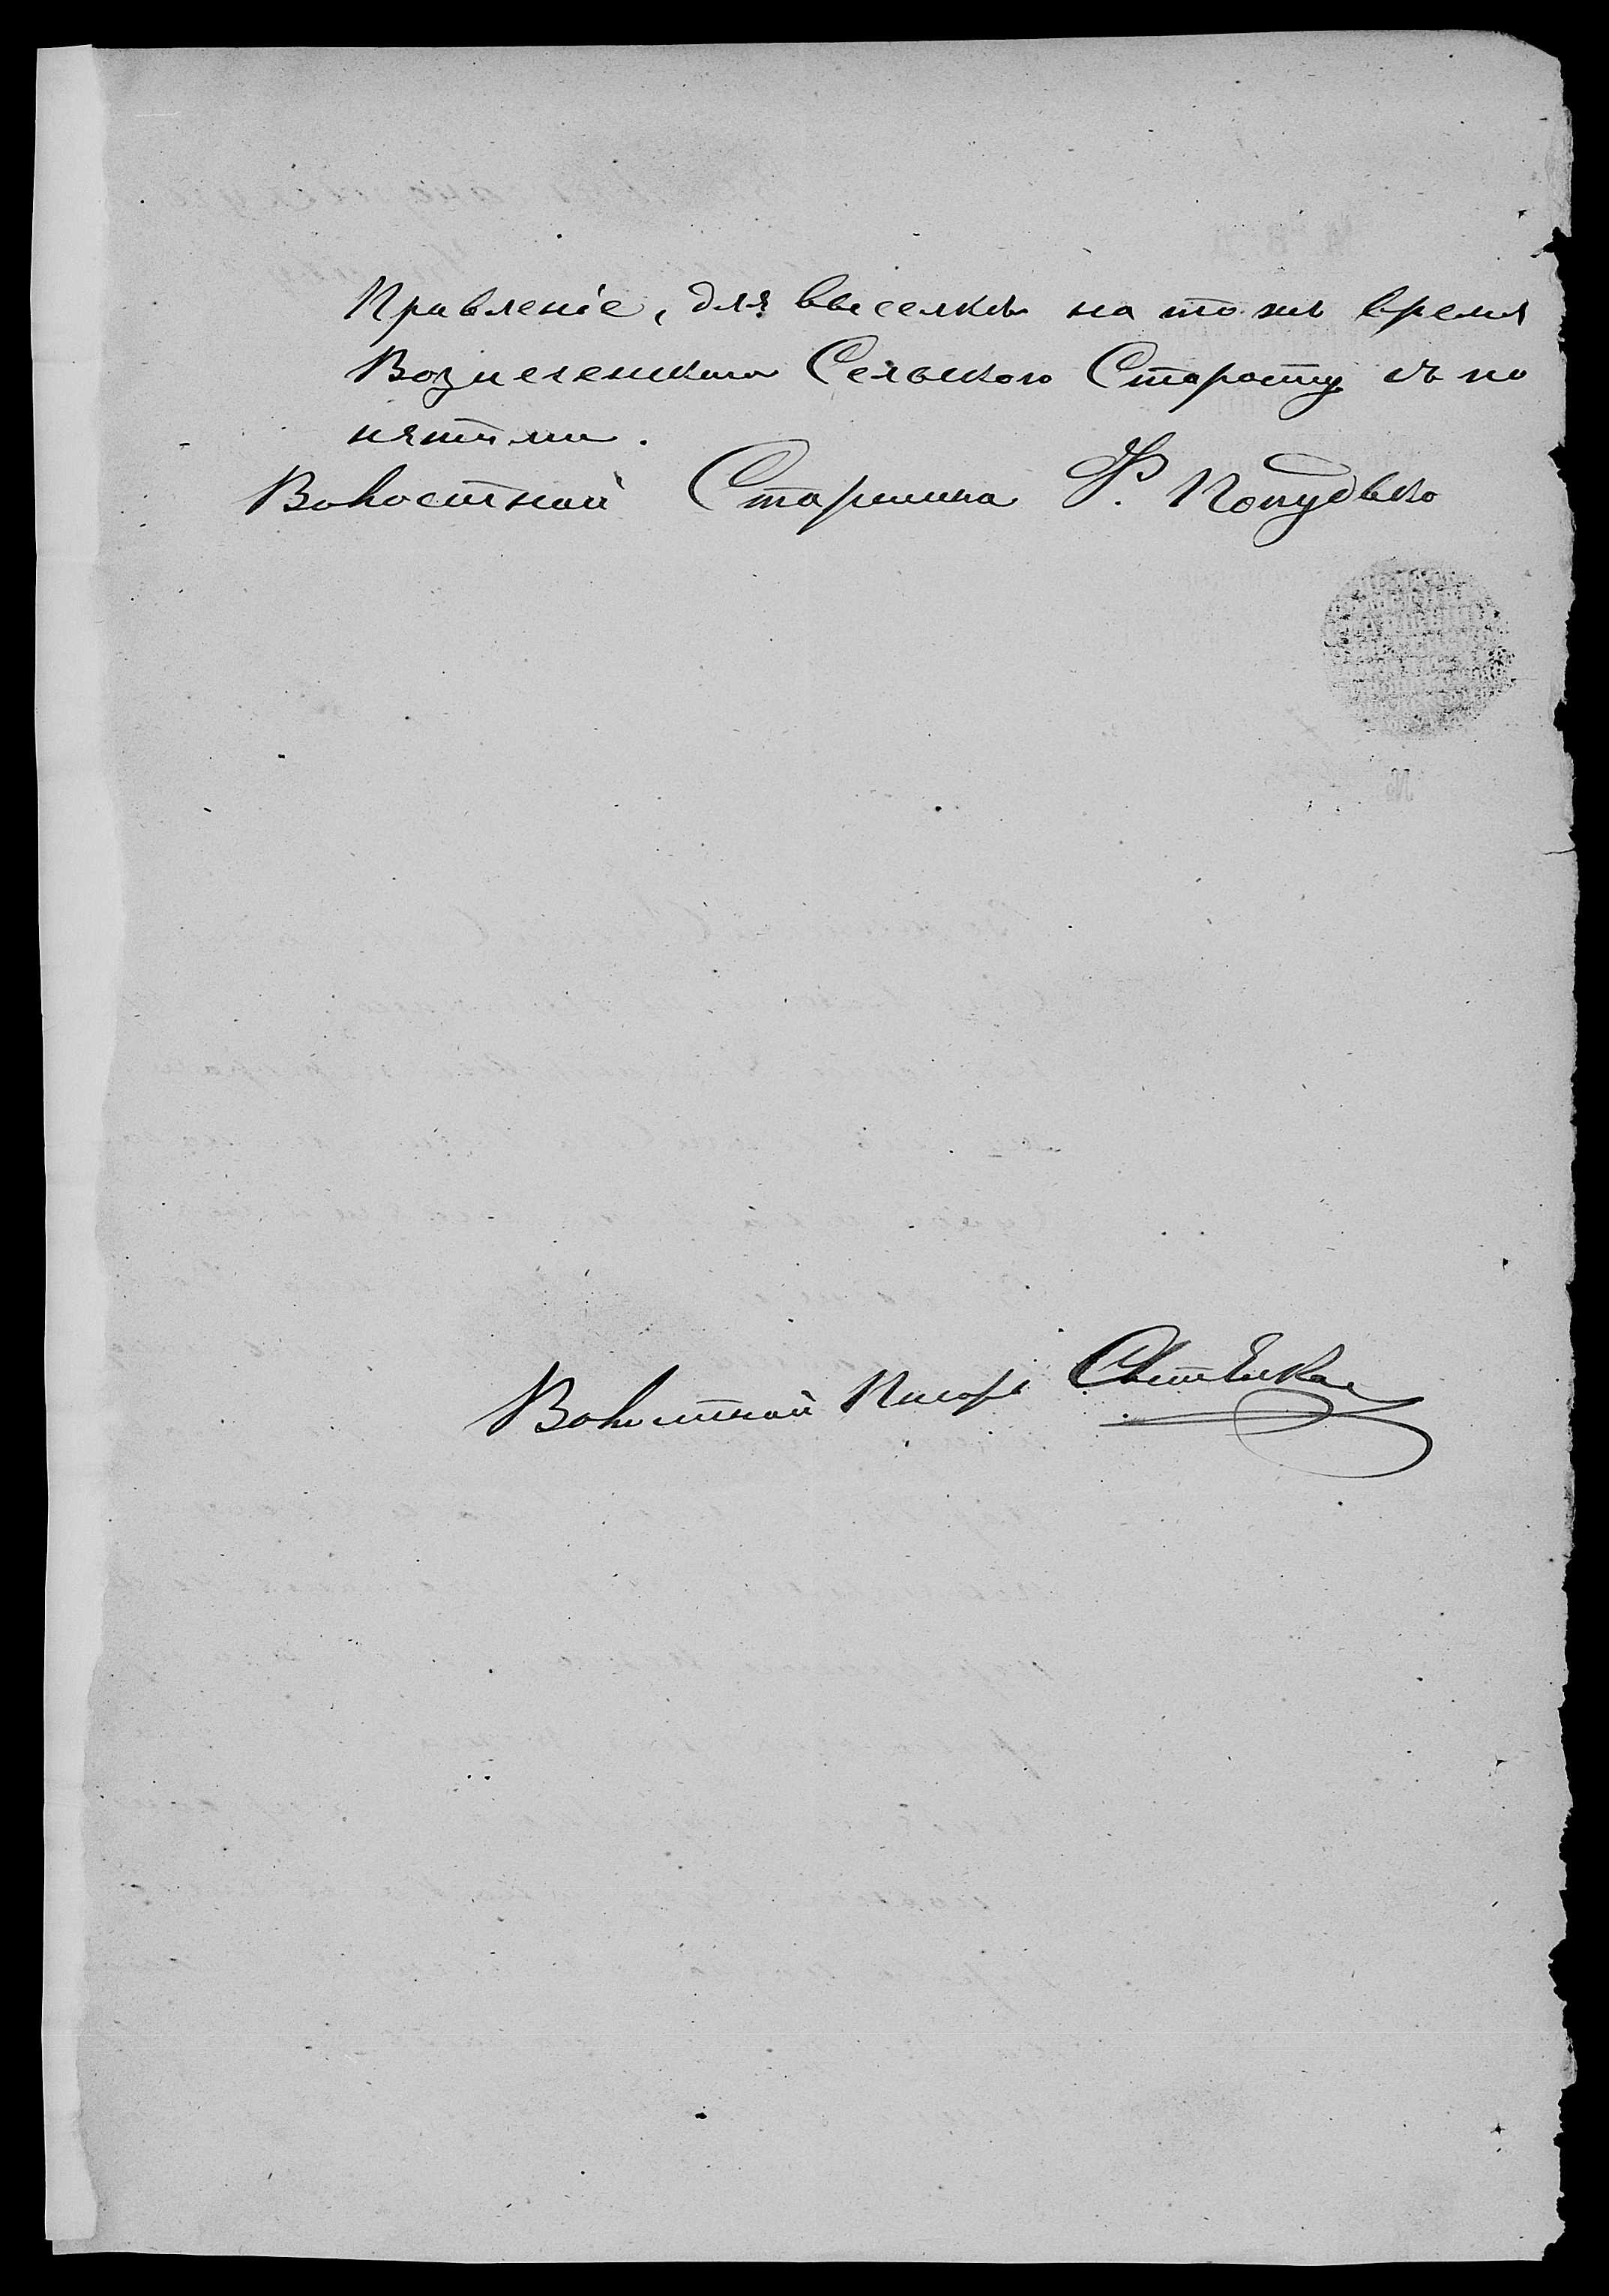 Правленіе, для высылки на тоже время
Вознесенскаго Сельского Старосту съ по
нятыми.
Волостной Старшина Ф. Попудько
Волостной Писарь